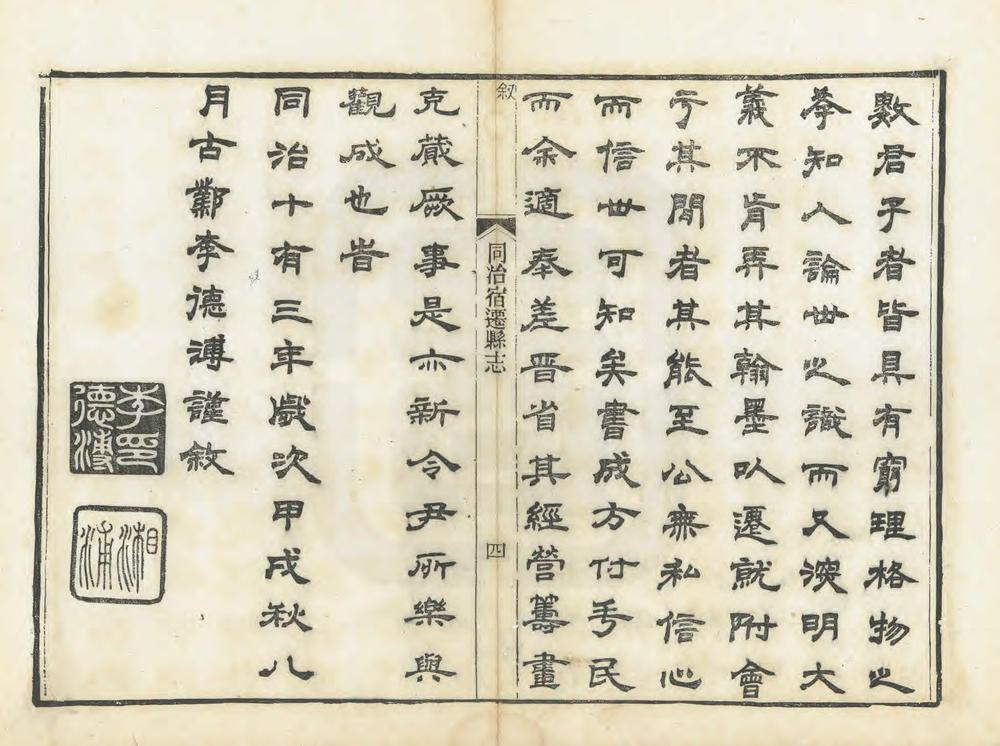 數君子者皆具有窮理格物之
學知人論世之識而又深明大
義不肯弄其翰墨以遷就附會
于其閒者其能至公無私信心
而信世可知矣書成方付手民
而余適奉差晉省其經營籌畫
敘
同治宿遷縣志
四
克蕆厥事是亦新令尹所樂與
觀成也旹
同治十有三年歲次甲戌秋八
月古李德溥謹敘
李印德溥
湘浦